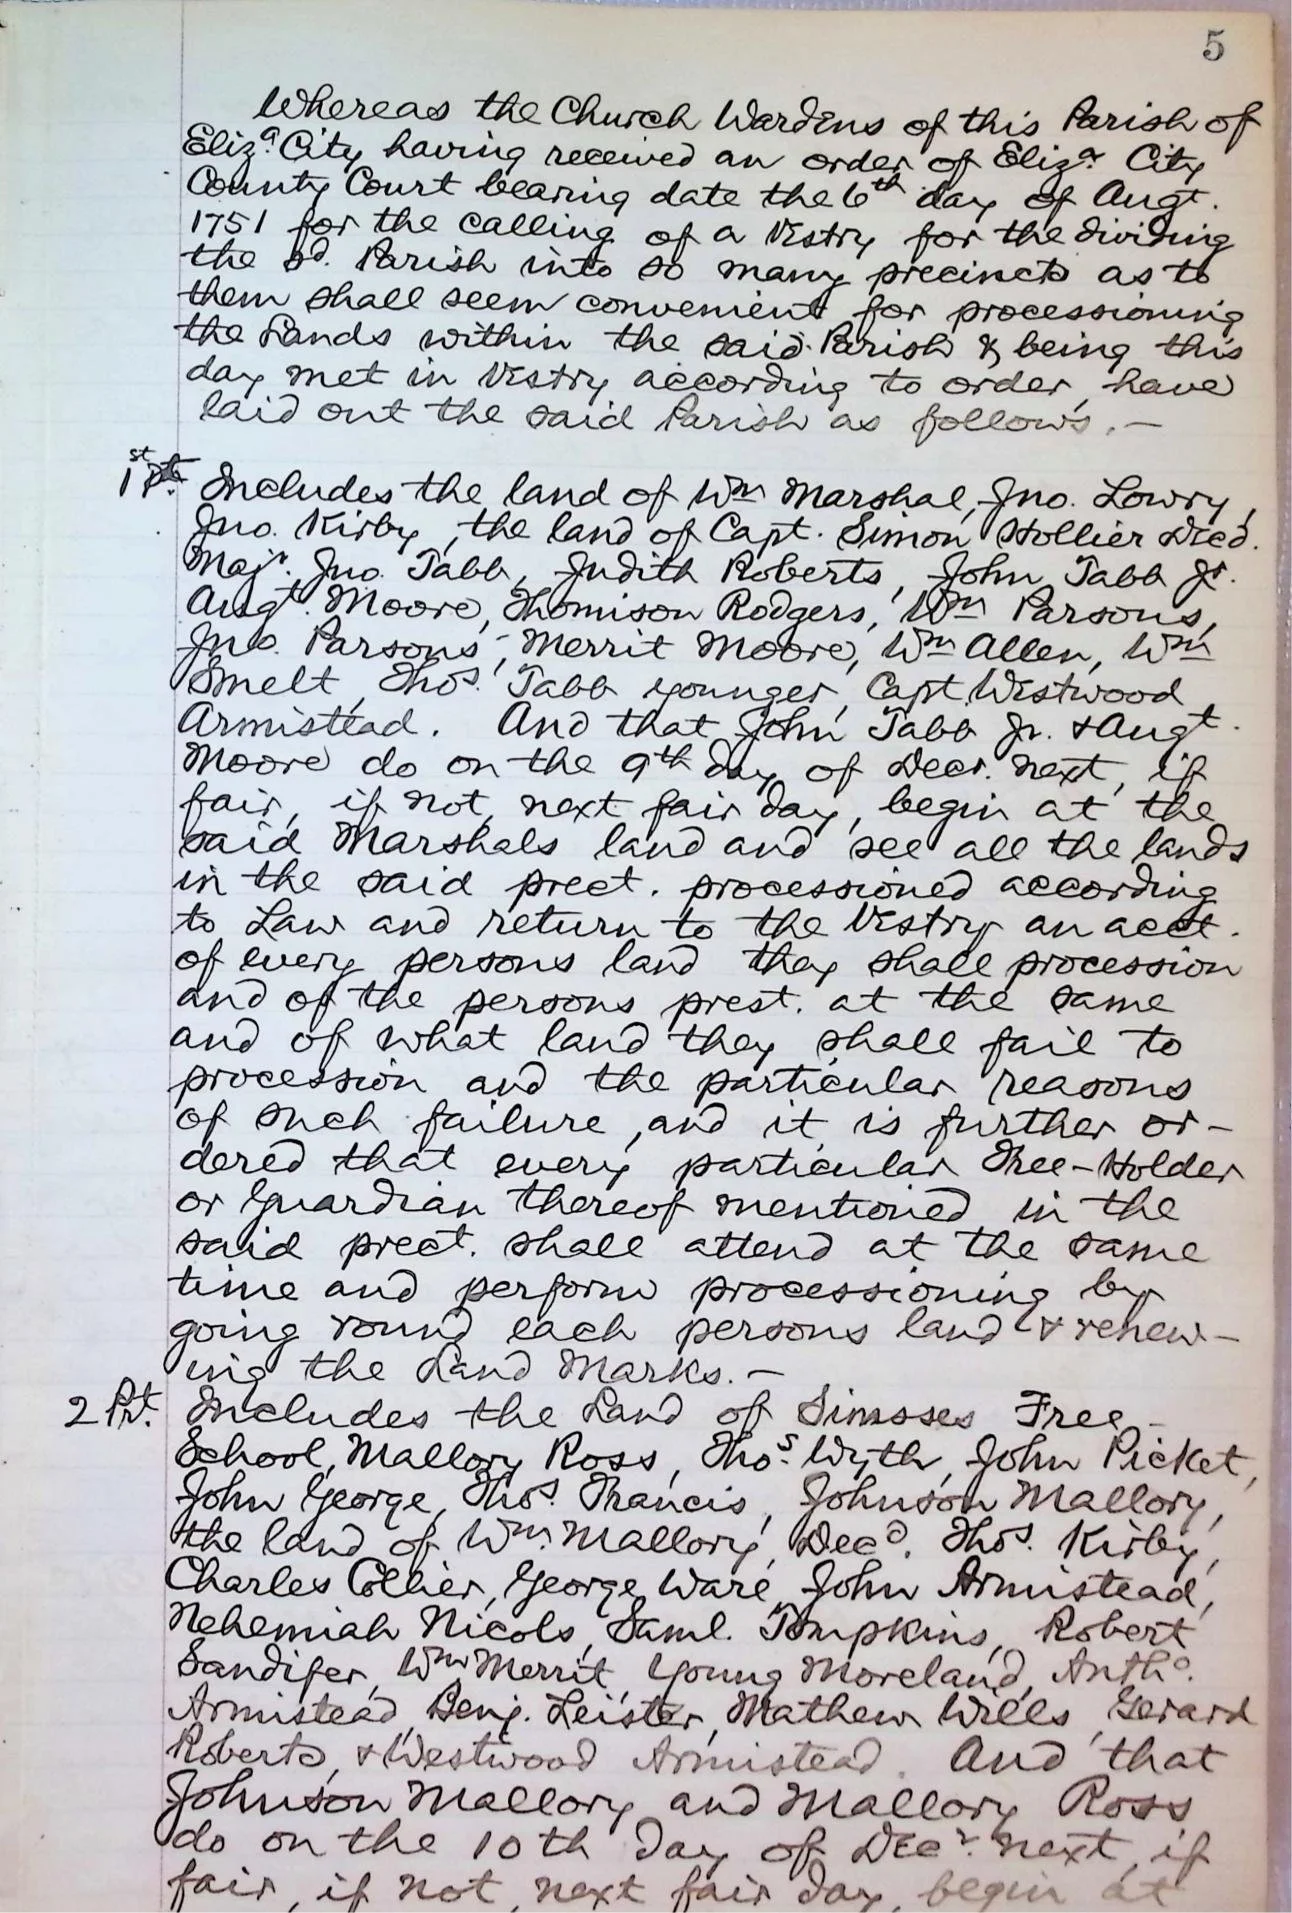 5
Whereas the Church Wardens of this Parish of
Eliz.a City having received an order of Eliz.a City
County Court bearing date the 6th day of Augt.
1751 for the calling of a Vestry for the dividing
the sd. Parish into so many precincts as to
them shall seem convenient for processioning
the Lands within the said Parish & being this
day met in Vestry according to order, have
laid out the said Parish as follows. —
1st Pt. Includes the land of Wm Marshal, Jno. Lowry,
Jno. Kirby, the land of Capt. Simon Hollier Decd.
Majr. Jno. Tabb, Judith Roberts, John Tabb Jr.
Augt. Moore, Thomison Rodgers, Wm Parsons,
Jno. Parsons, Merrit Moore, Wm Allen, Wm
Smelt, Thos. Tabb younger, Capt. Westwood
Armistead. And that John Tabb Jr. & Augt.
Moore do on the 9th day of Decr. next, if
fair, if not, next fair day, begin at the
said Marshals land and see all the lands
in the said prect. processioned according
to Law and return to the Vestry an acct.
of every persons land thay shall procession
and of the persons prest. at the same
and of what land they shall fail to
procession and the particular reasons
of such failure, and it is further or-
dered that every particular Free-Holder
or Guardian thereof mentioned in the
said prect. shall attend at the same
time and perform processioning by
going round each persons land & renew-
ing the Land Marks. —
2 Prt. Includes the Land of Simsses Free
School, Mallory Ross, Thos. Wyth, John Picket,
John George, Thos. Francis, Johnson Mallory,
the land of Wm. Mallory, Decd. Thos. Kirby,
Charles Collier, George Ware, John Armistead,
Nehemiah Nicols, Saml. Tompkins, Robert
Sandifer, Wm Merrit, Young Moreland, Antho.
Armistead, Benj. Leister, Mathew Wills, Gerard
Roberts, & Westwood Armistead. And that
Johnson Mallory and Mallory Ross
do on the 10th day of Decr. next, if
fair, if not, next fair day, begin at